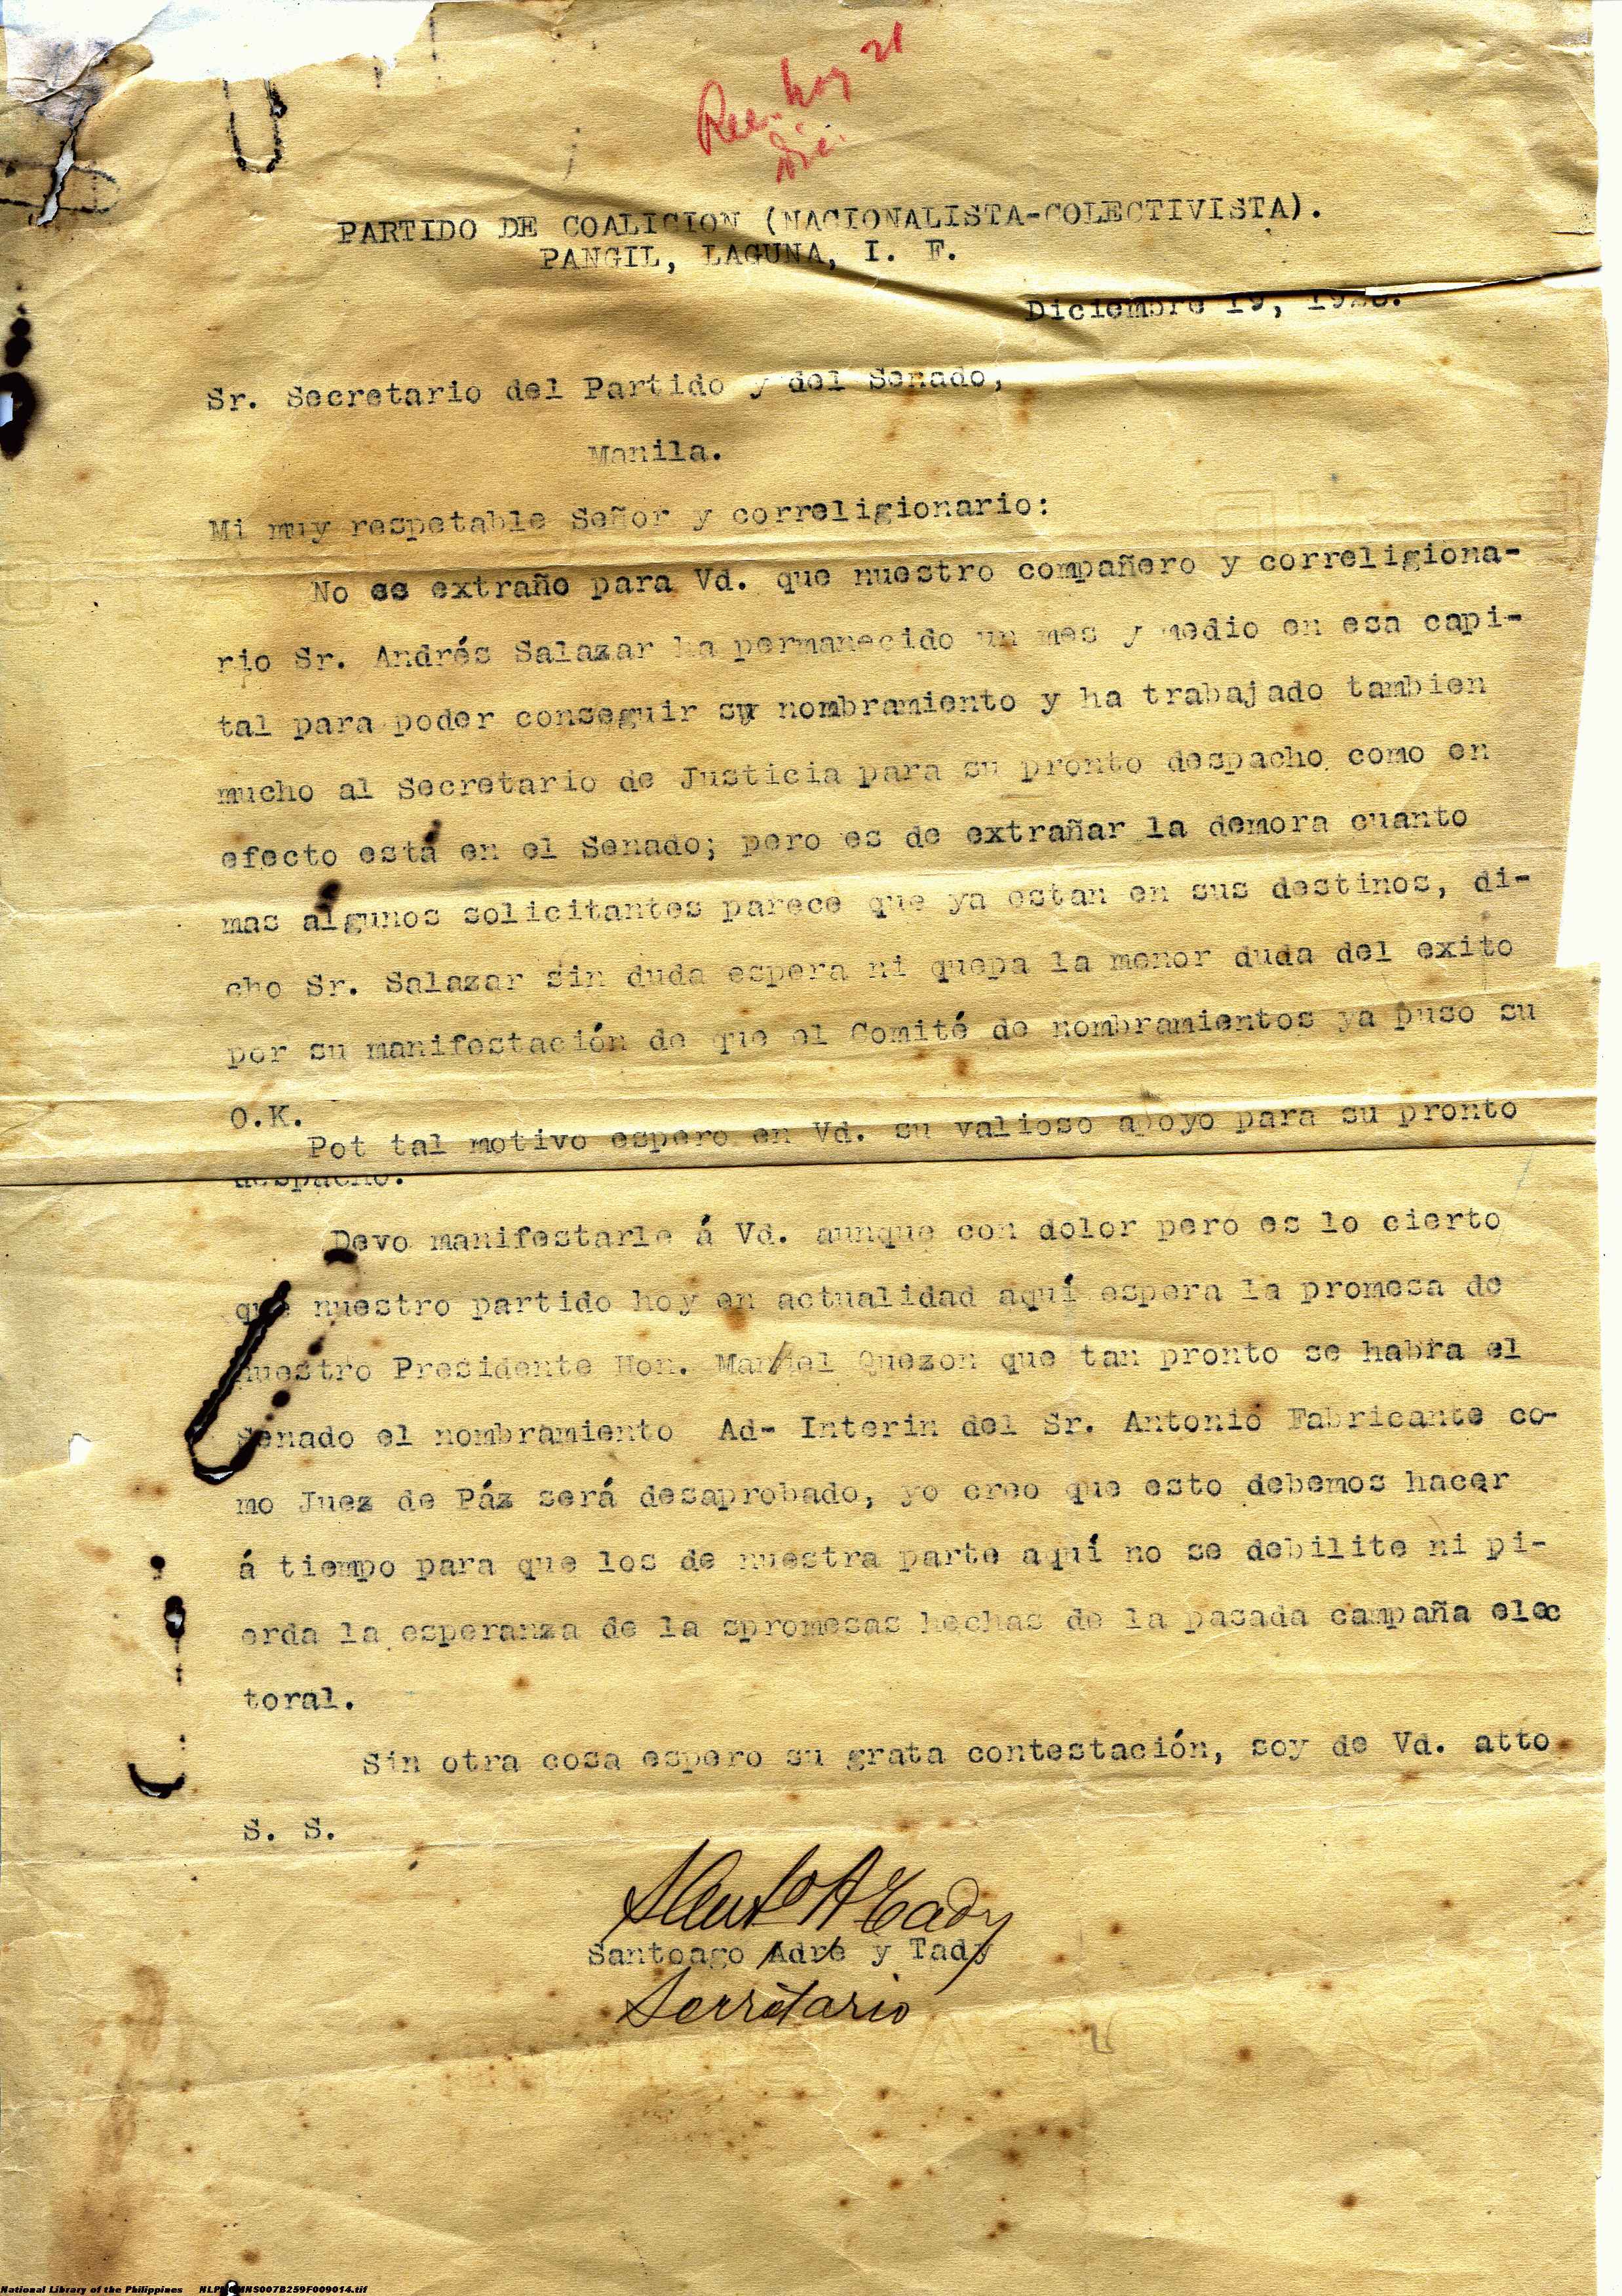 Rec. hoy 21
Dic.
PARTIDO DE COALICION (NACIONALISTA-COLECTIVISTA).
PANGIL, LAGUNA, I. F.
Diciembre 19,
Sr. Secretario del Partido y del Senado,
Manila.
Mi muy respetable Señor y correligionario:
No es extraño para Vd. que nuestro compañero y correligiona-
rio Sr. Andrés Salazar ha permanecido un mes y medio en esa capi-
tal para poder conseguir su nombramiento y ha trabajado tambien
mucho al Secretario de Justicia para su pronto despacho como en
efecto está en el Senado; pero es de extrañar la demora cuanto
mas algunos solicitantes parece que ya estan en sus destinos, di-
cho Sr. Salazar sin duda espera ni quepa la menor duda del exito
por su manifestación de que el Comité de nombramientos ya puso su
O.K.
Pot tal motivo espero en Vd. su valioso apoyo para su pronto
despacho.
Devo manifestarle á Vd. aunque con dolor pero es lo cierto
que nuestro partido hoy en actualidad aquí espera la promesa de
nuestro Presidente Hon. Manuel Quezon que tan pronto se habra el
Senado el nombramiento Ad- Interin del Sr. Antonio Fabricante co-
mo Juez de Páz será desaprobado, yo creo que esto debemos hacer
á tiempo para que los de nuestra parte aquí no se debilite ni pi-
erda la esperanza de la spromesas hechas de la pasada campaña elec
toral.
Sin otra cosa espero su grata contestación, soy de Vd. atto
S. S.
Santoago Adre y Tady
Secretario
National Library of the Philippines